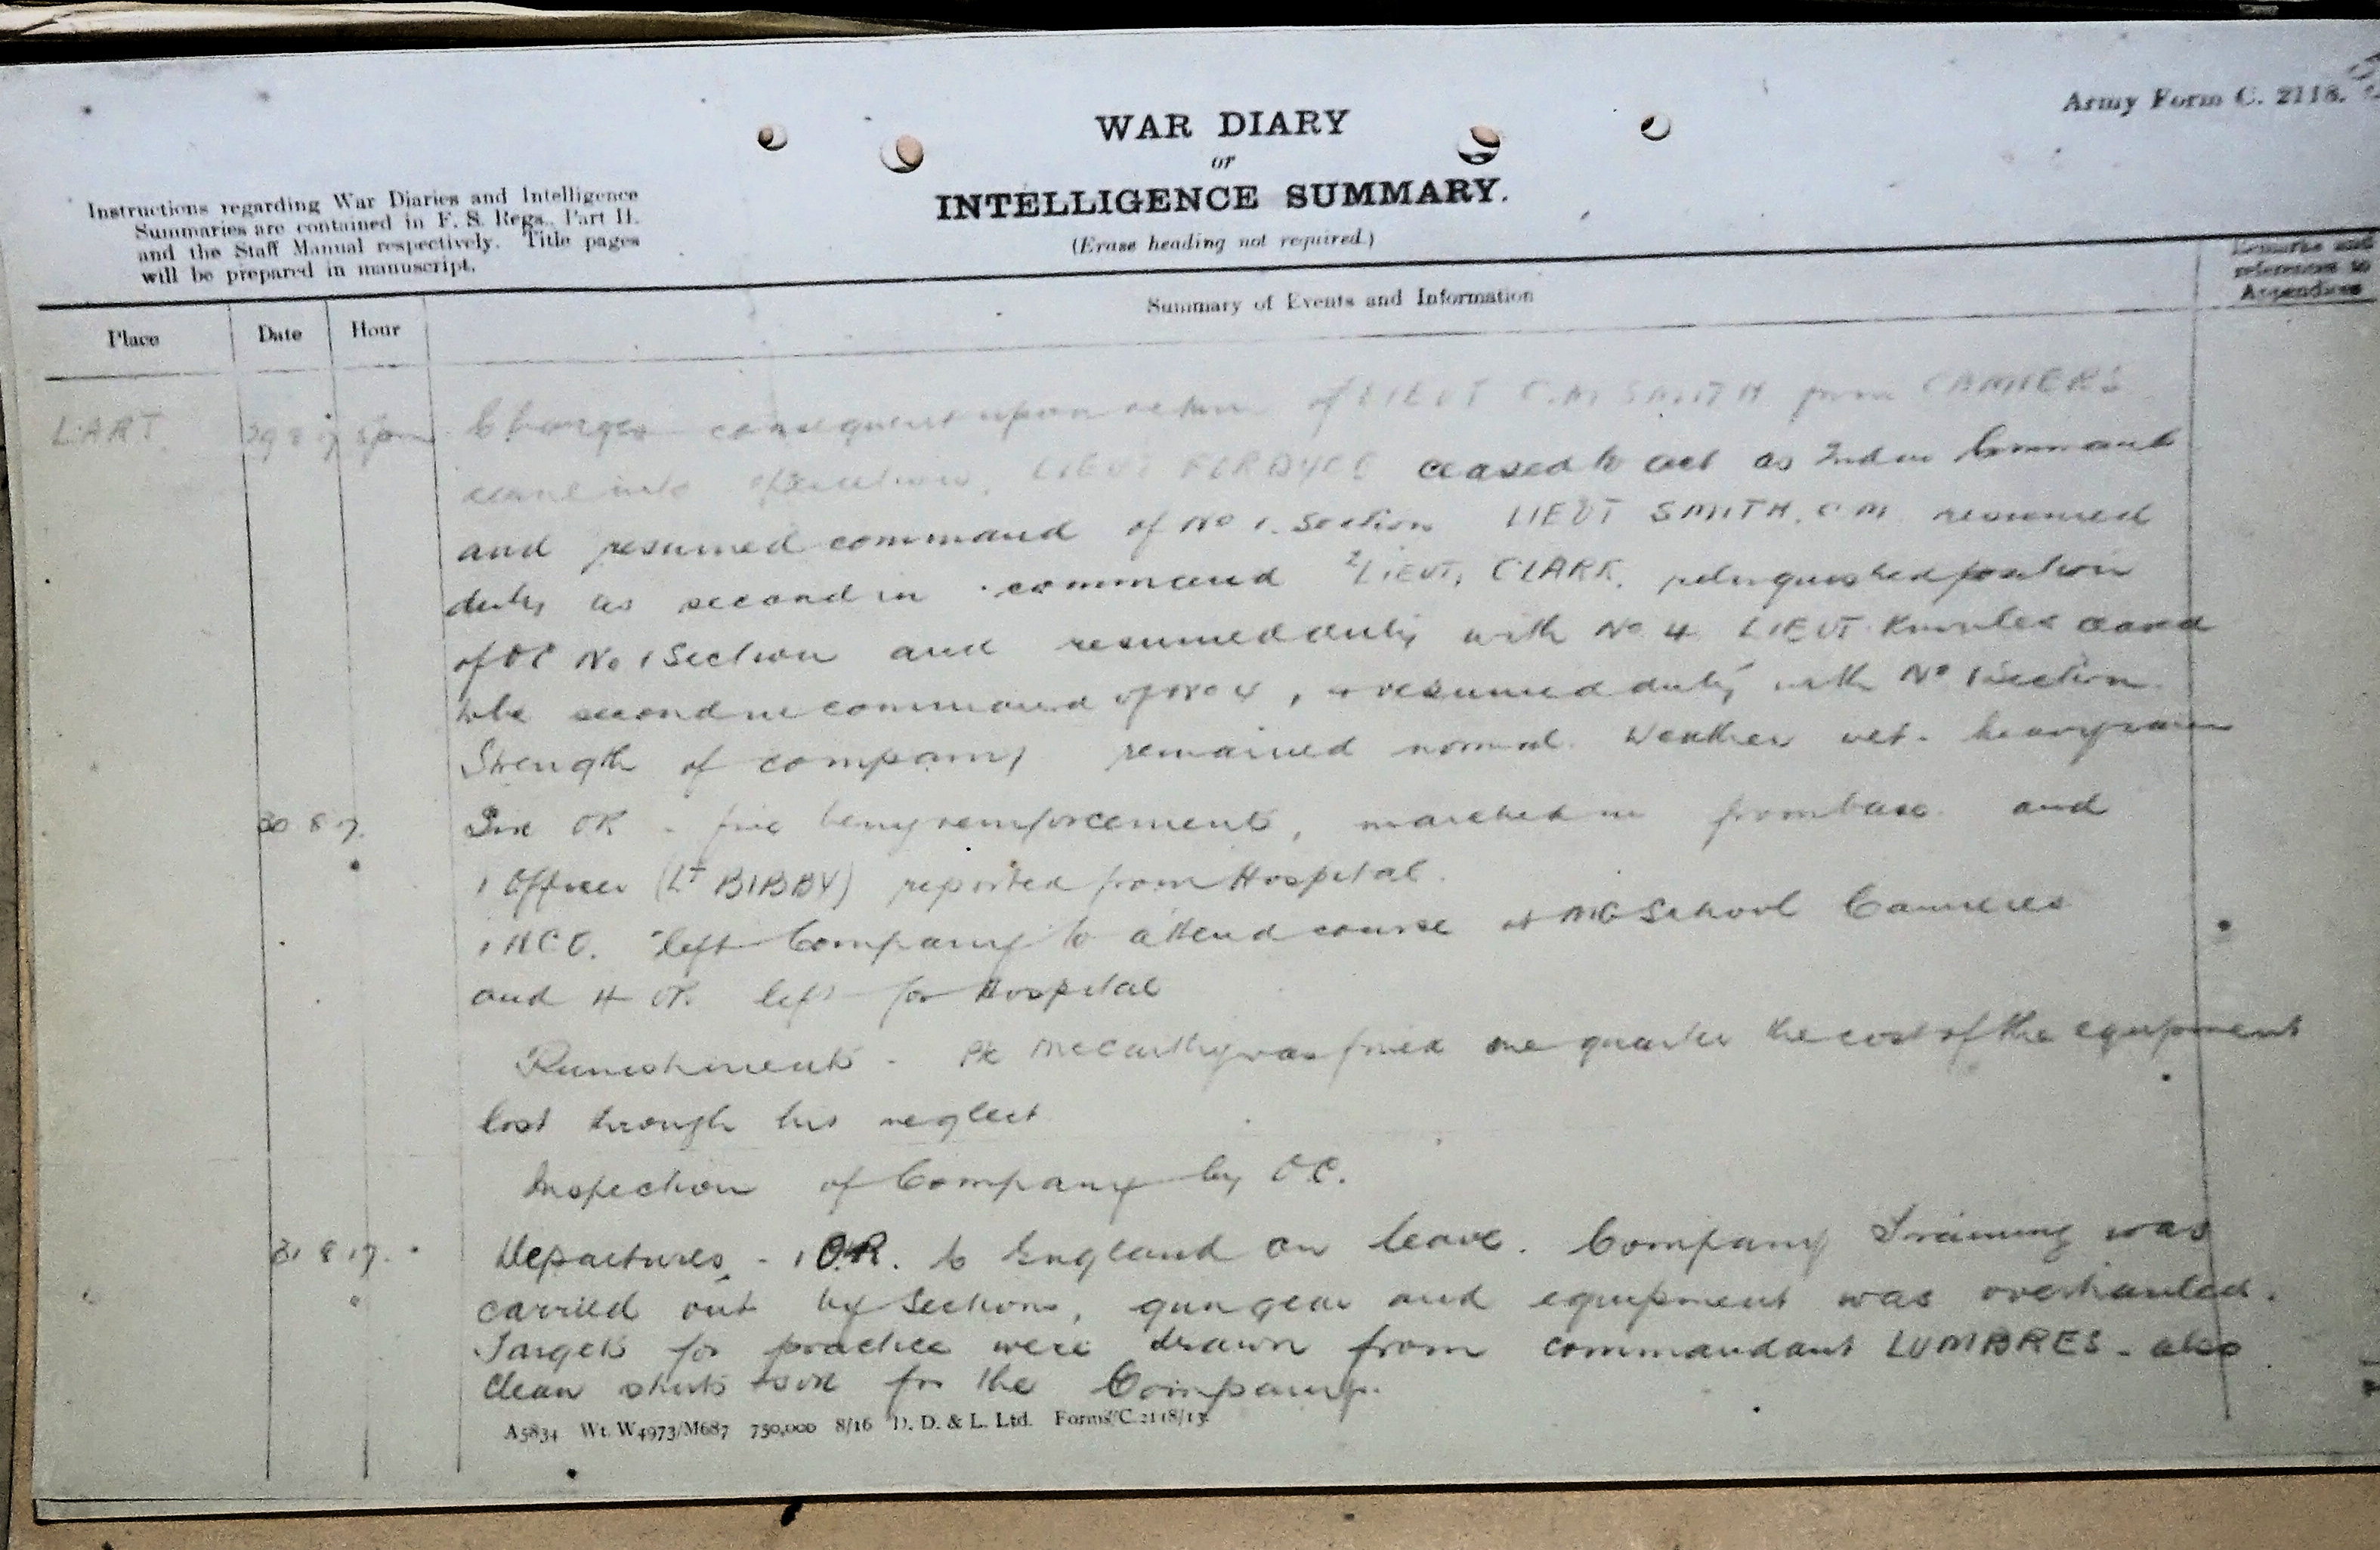 Army Form C. 2118.
WAR DIARY
or
INTELLIGENCE SUMMARY.
(Erase heading not required.)
Instructions regarding War Diaries and Intelligence
Summaries are contained in F. S. Regs., Part II.
and the Staff Manual respectively. Title pages
will be prepared in manuscript.
Place Date Hour Summary of Events and Information
Remarks and
references to
Appendices
LART. 29 8 17 5pm Changes consequent upon return of LIEUT C.M SMITH from CAMIERS
came into operation. LIEUT FORDYCE ceased to act as 2nd in Command
and resumed command of No 1. Section LIEUT SMITH. C.M resumed
duty as second in command 2LIEUT, CLARK. relinquished position
of OC No 1 Section and resumed duty with No 4 LIEUT Knowles ceased
to be second in command of No 4, + resumed duty with No 1 Section.
Strength of company remained normal. Weather wet - heavy rain
30 8 17. Six OR - five being reinforcements, marched in from base and
1 Officer (Lt BIBBY) reported from Hospital.
1 NCO. left Company to attend course at MG School Camieres
and 4 OR. left for Hospital
Punishments - Pte McCarthy was fined one quarter the cost of the equipment
lost through his neglect
Inspection of Company by OC.
31 8 17. Departures - 1 O.R. to England on leave. Company Training was
carried out by Sections, gun gear and equipment was overhauled.
Targets for practice were drawn from commandant LUMBRES - also
clean shirts + sox for the Company.
A5834 Wt. W4973/M687 750,000 8/16 D. D. & L. Ltd. Forms/C.2118/13.